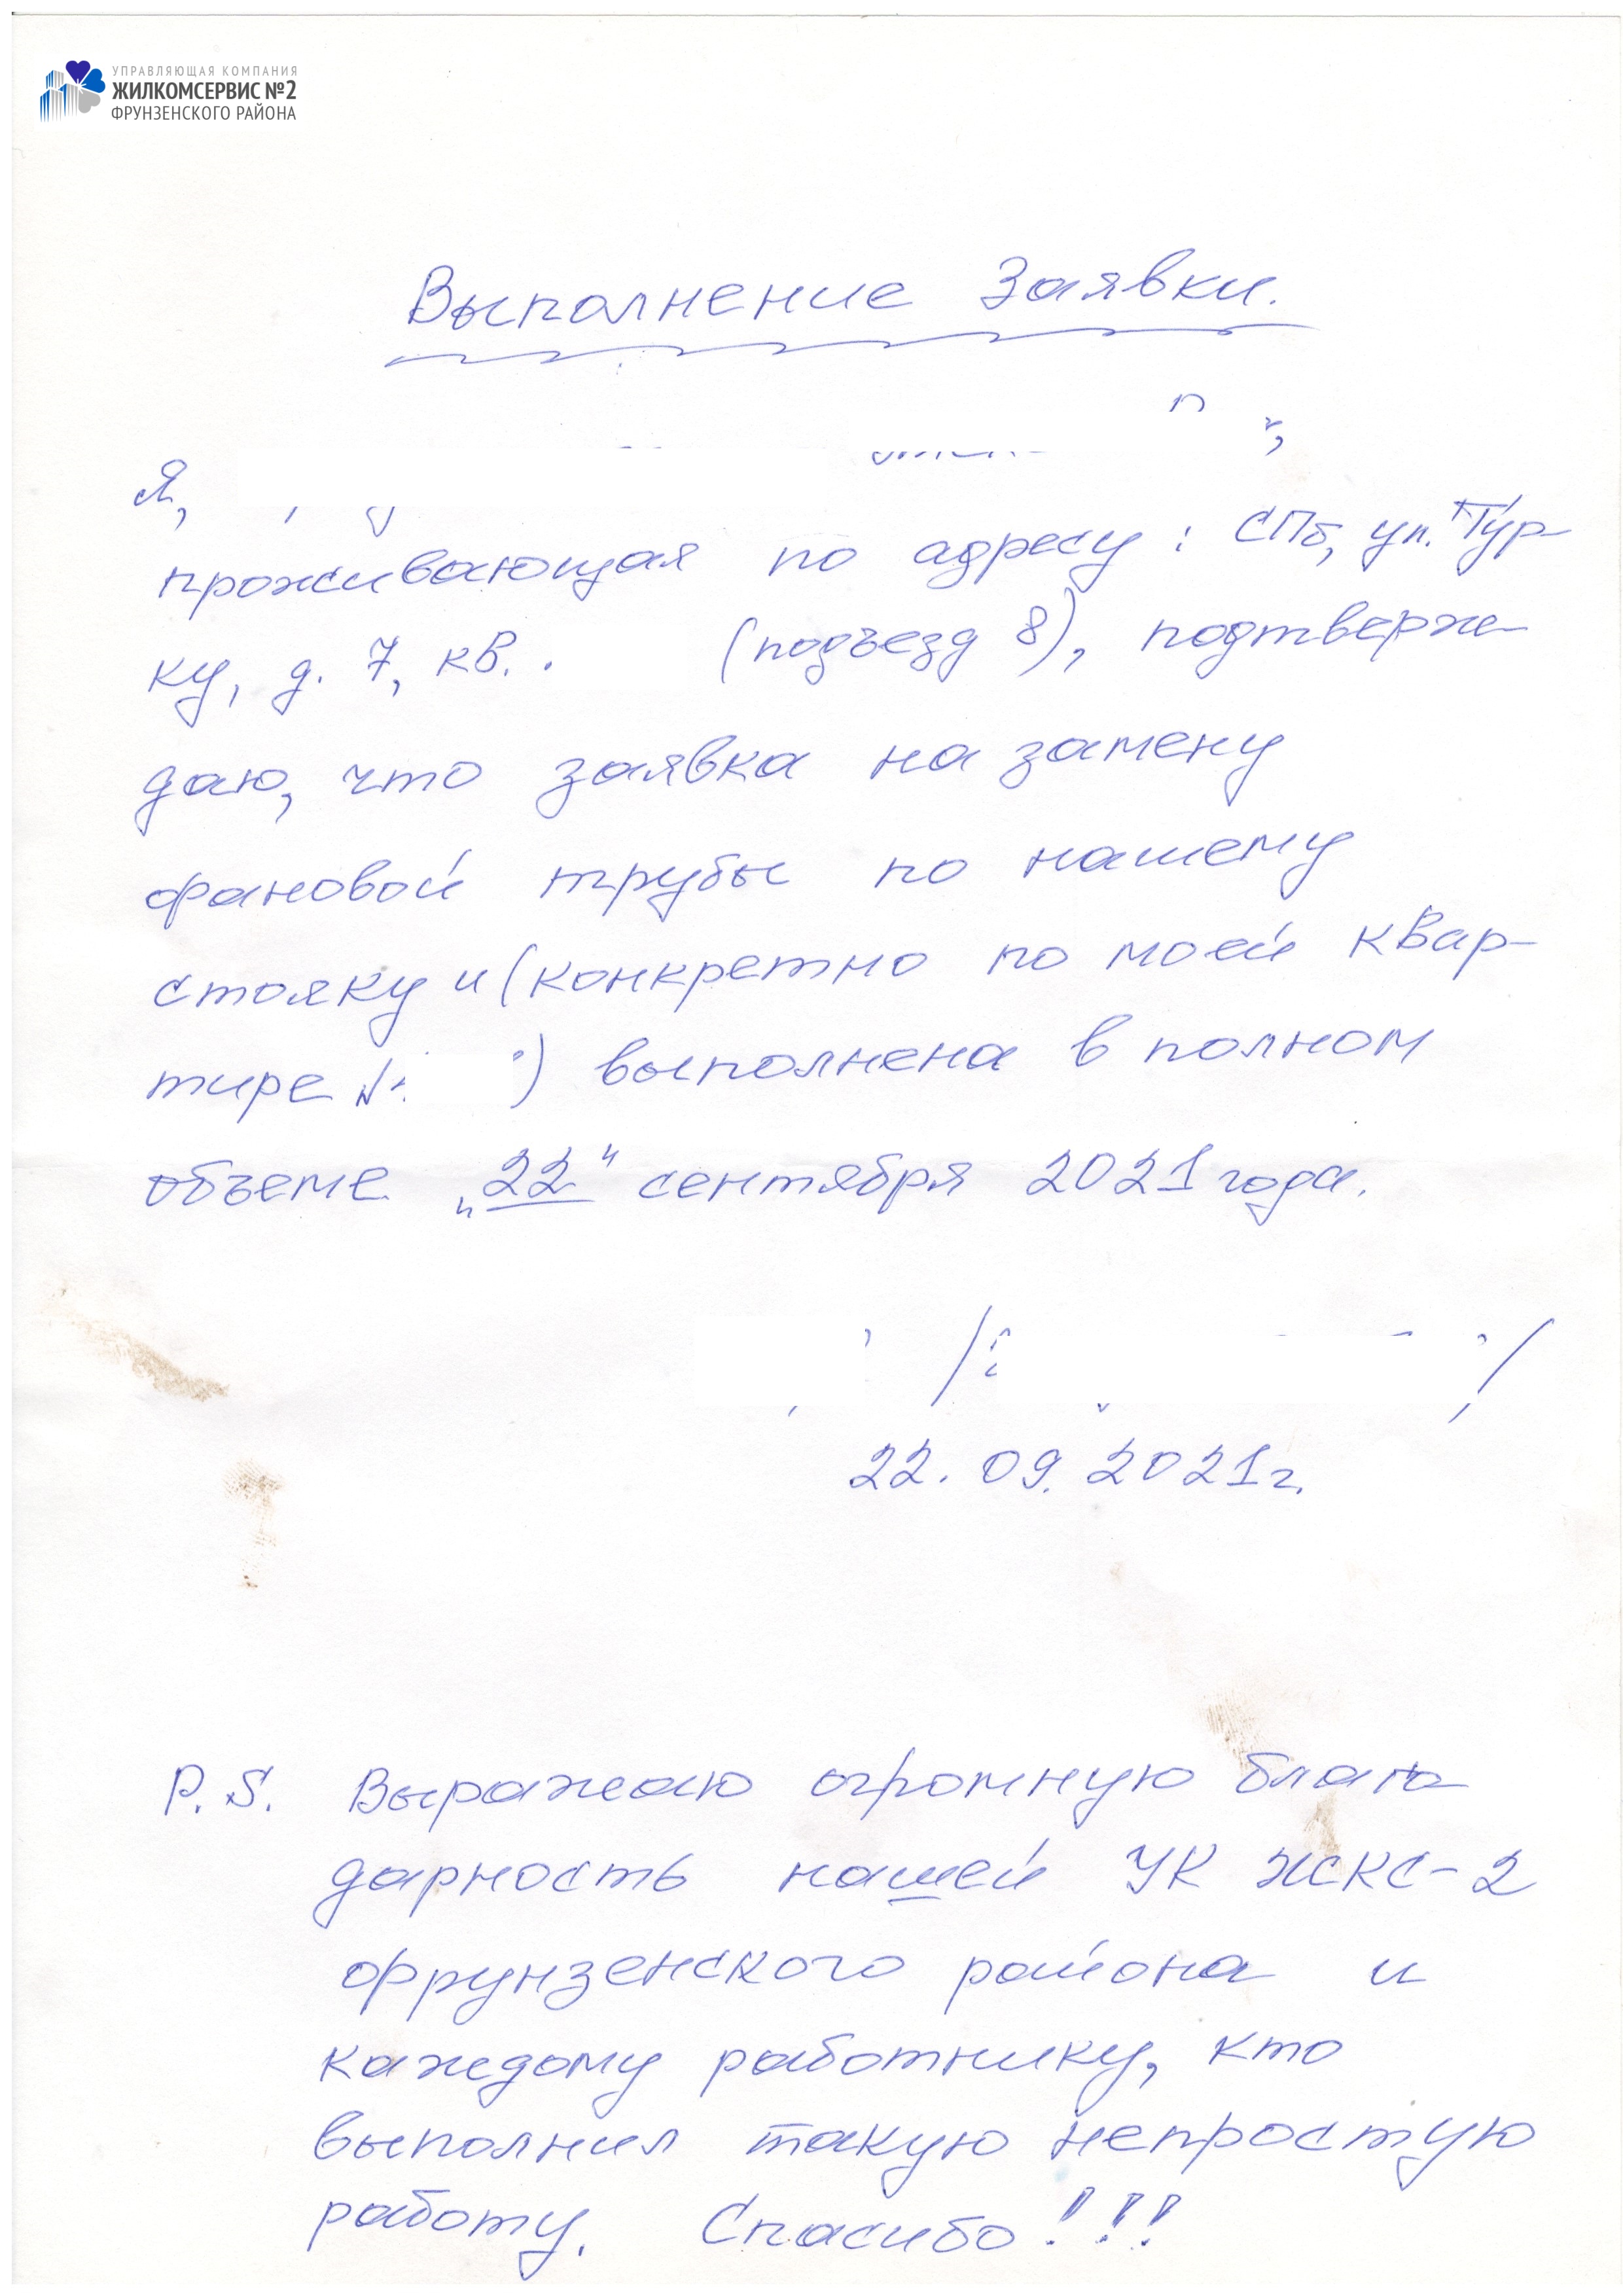 УПРАВЛЯЮЩАЯ КОМПАНИЯ
ЖИЛКОМСЕРВИС №2
ФРУНЗЕНСКОГО РАЙОНА
Выполнение Заявки.
Я,
проживающая по адресу: СПб, ул. Тур-
ку, д. 7, кв. (подъезд 8), подтверж-
даю, что заявка на замену
фановой трубы по нашему
стояку и (конкретно по моей квар-
тире ) выполнена в полном
объеме „22" сентября 2021 года.
/ /
22.09.2021г.
P.S. Выражаю огромную благо
дарность нашей УК ЖКС-2
Фрунзенского района и
каждому работнику, кто
выполнил такую непростую
работу. Спасибо!!!